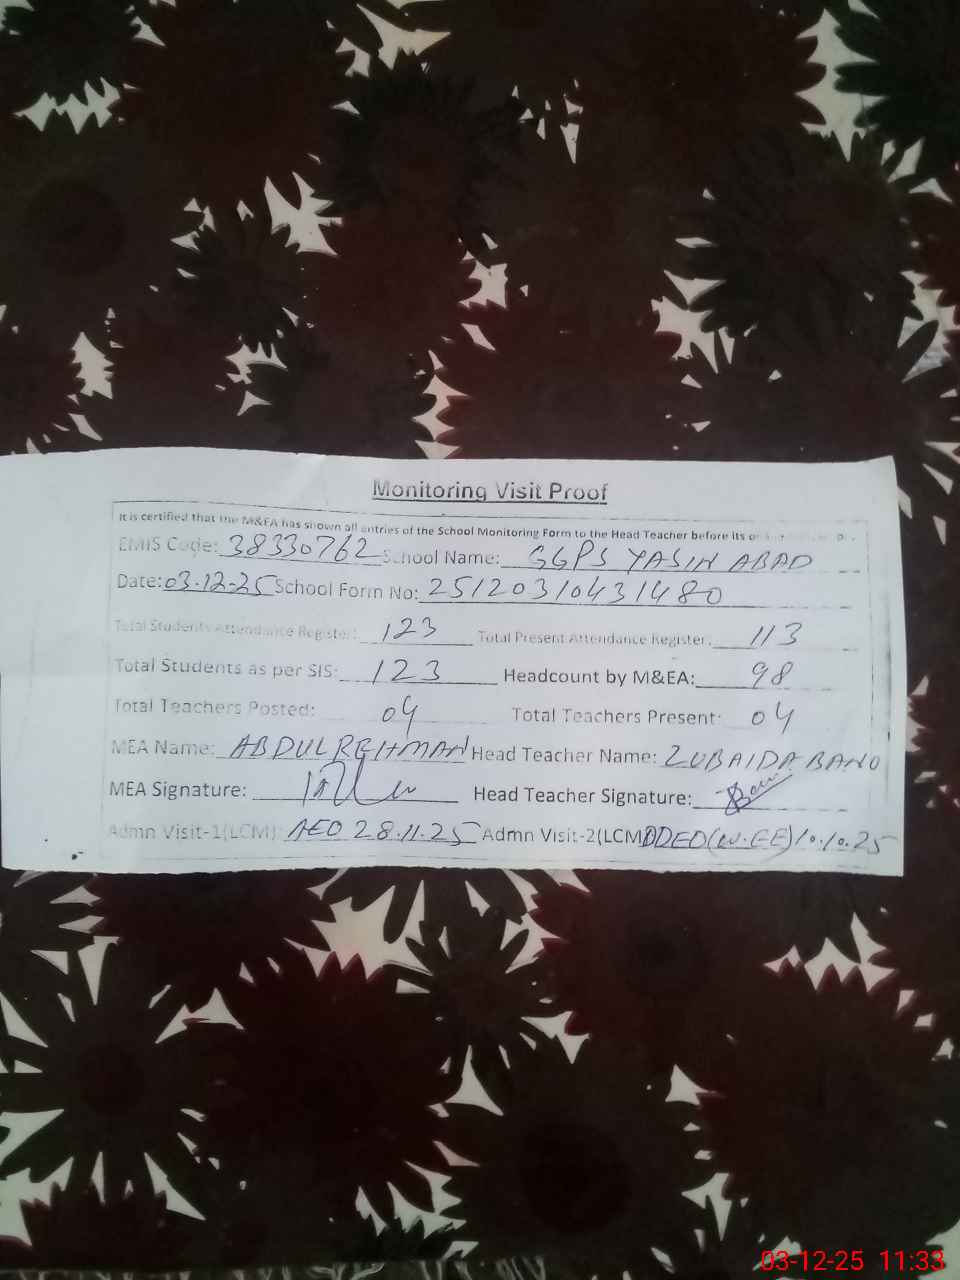 Monitoring Visit Proof
It is certified that the M&EA has shown all entries of the School Monitoring Form to the Head Teacher before its
EMIS Code: 38330762 School Name: GGPS YASIN ABAD
Date: 03.12.25 School Form No: 25120310431480
Total Students Attendance Register: 123 Total Present Attendance Register: 113
Total Students as per SIS: 123 Headcount by M&EA: 98
Total Teachers Posted: 04 Total Teachers Present: 04
MEA Name: ABDUL REHMAN Head Teacher Name: ZUBAIDA BANO
MEA Signature: Head Teacher Signature:
Admn Visit-1(LCM): AEO 28.11.25 Admn Visit-2(LCM) DDEO(W.EE) 10.10.25
03-12-25 11:33